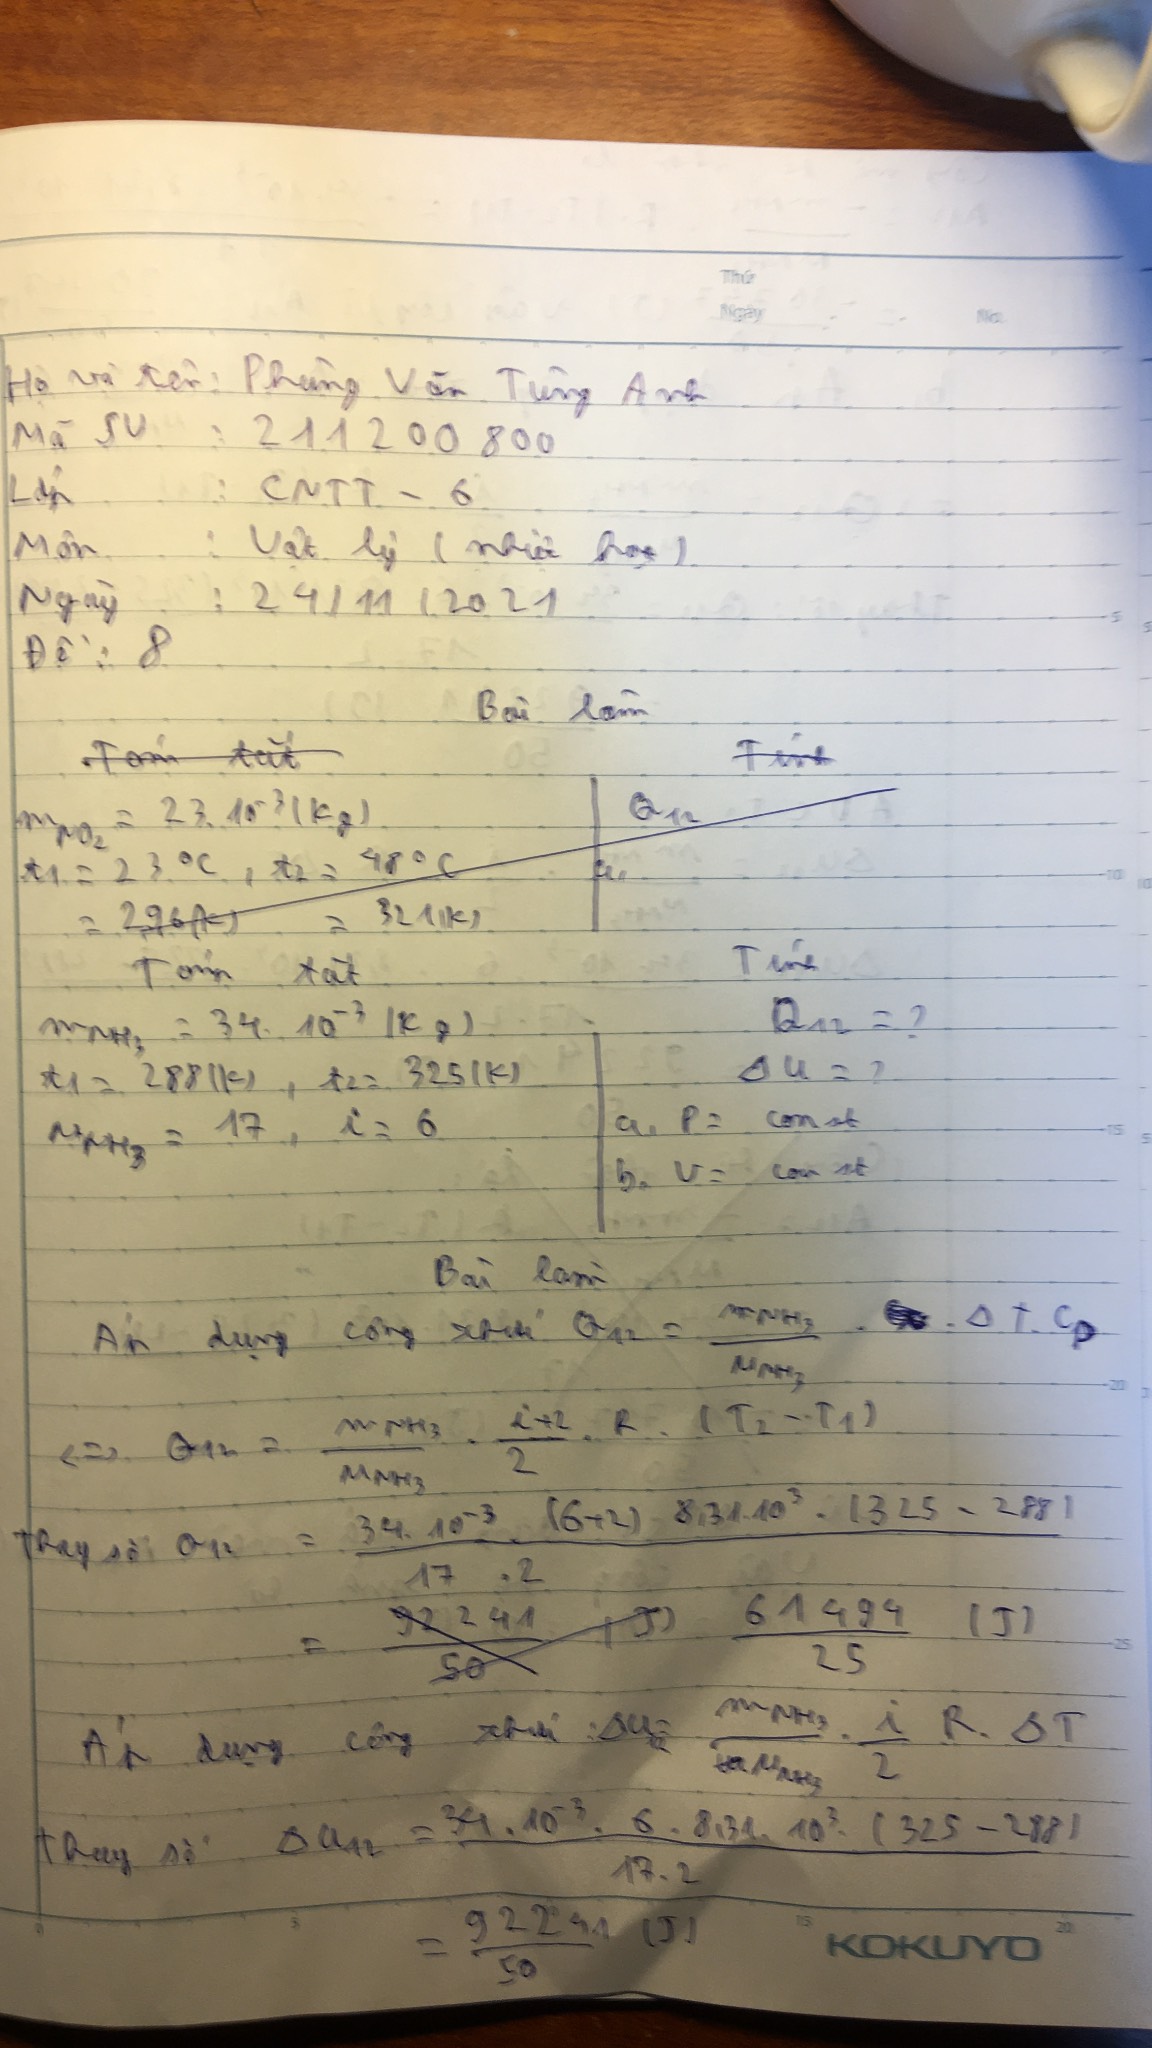 Thứ
Ngày No.
Họ và tên: Phùng Văn Tùng Anh
Mã SV : 211200800
Lớp : CNTT - 6
Môn : Vật lý (nhiệt học)
Ngày : 24/11/2021
Đề: 8
Bài làm
Tóm tắt Tính
m_NO₂ = 23.10⁻³(kg) Q₁₂
t₁ = 23°C, t₂ = 48°C a.
= 296(K) = 321(K)
Tóm tắt Tính
m_NH₃ = 34.10⁻³(kg) Q₁₂ = ?
t₁ = 288(K), t₂ = 325(K) ΔU = ?
μ_NH₃ = 17, i = 6 a. P = const
b. V = const
Bài làm
Áp dụng công thức Q₁₂ = m_NH₃/μ_NH₃ . ΔT.Cp
<=> Q₁₂ = m_NH₃/μ_NH₃ . (i+2)/2 . R . (T₂ - T₁)
Thay số Q₁₂ = 34.10⁻³.(6+2) 8,31.10³.(325 - 288)/17.2
= 92241/50 (J) 61494/25 (J)
Áp dụng công thức: ΔU₁₂ = m_NH₃/μ_NH₃ . i/2 R. ΔT
Thay số ΔU₁₂ = 34.10⁻³.6.8,31.10³.(325 - 288)/17.2
= 92241/50 (J)
KOKUYO